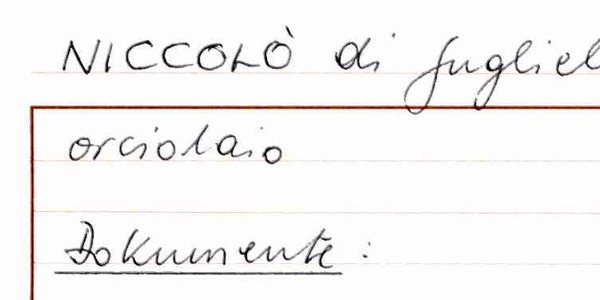 NICCOLÒ di Gugliel
orciolaio
Dokumente: